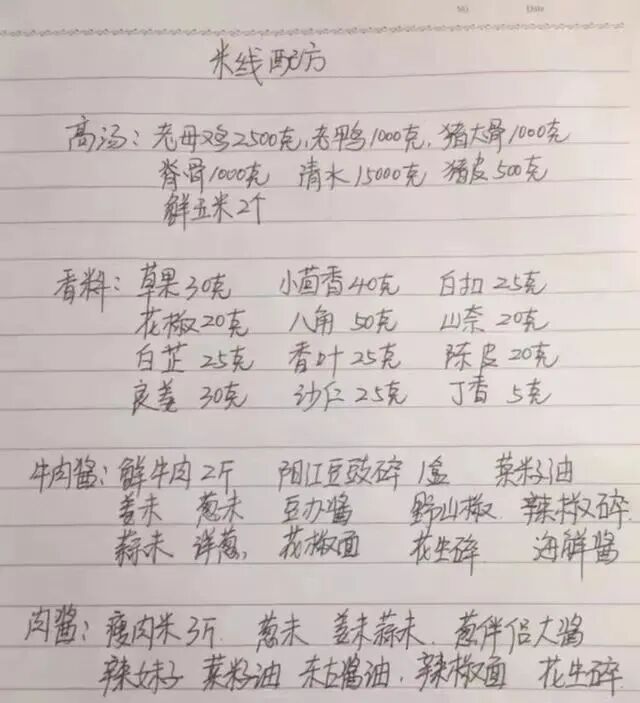 No. Date
米线配方
高汤：老母鸡2500克，老鸭1000克，猪大骨1000克
脊骨1000克 清水15000克 猪皮500克
鲜玉米2个
香料：草果30克 小茴香40克 白扣25克
花椒20克 八角50克 山奈20克
白芷25克 香叶25克 陈皮20克
良姜30克 沙仁25克 丁香5克
牛肉酱：鲜牛肉2斤 阳江豆豉碎1盒 菜籽油
姜末 葱末 豆办酱 野山椒 辣椒碎
蒜末 洋葱、 花椒面 花生碎 海鲜酱
肉酱：瘦肉米3斤 葱末 姜末蒜末、葱伴侣大酱
辣妹子 菜籽油 东古酱油、辣椒面 花生碎